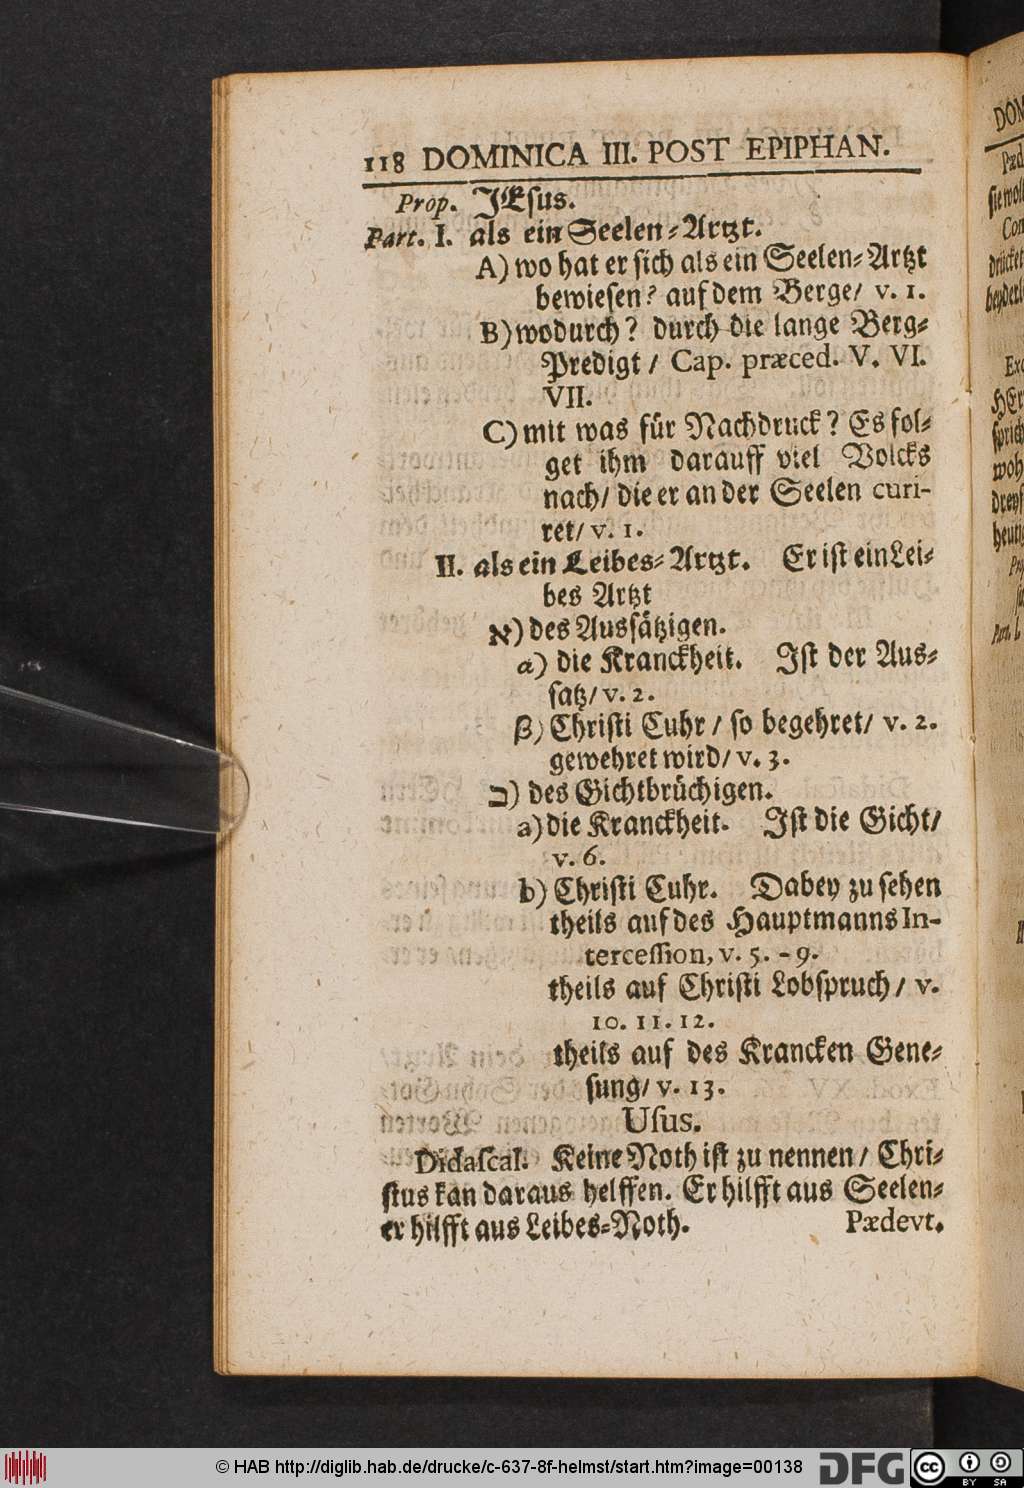 118 DOMINICA III. POST EPIPHAN.
Prop. JEſus.
Part. I. als ein Seelen-Artzt.
A) wo hat er ſich als ein Seelen-Artzt
bewieſen? auf dem Berge/ v. 1.
B) wodurch? durch die lange Berg-
Predigt / Cap. præced. V. VI.
VII.
C) mit was für Nachdruck? Es fol-
get ihm darauff viel Volcks
nach/ die er an der Seelen curi-
ret/ v. 1.
II. als ein Leibes-Artzt. Er iſt ein Lei-
bes Artzt
א) des Ausſätzigen.
α) die Kranckheit. Iſt der Aus-
ſatz/ v. 2.
β) Chriſti Cuhr / ſo begehret/ v. 2.
gewehret wird/ v. 3.
ב) des Gichtbrüchigen.
a) die Kranckheit. Iſt die Gicht/
v. 6.
b) Chriſti Cuhr. Dabey zu ſehen
theils auf des Hauptmanns In-
terceſſion, v. 5. - 9.
theils auf Chriſti Lobſpruch / v.
10. 11. 12.
theils auf des Krancken Gene-
ſung/ v. 13.
Uſus.
Didaſcal. Keine Noth iſt zu nennen / Chri-
ſtus kan daraus helffen. Er hilfft aus Seelen-
er hilfft aus Leibes-Noth. Pædevt.
© HAB http://diglib.hab.de/drucke/c-637-8f-helmst/start.htm?image=00138
DFG
cc BY SA